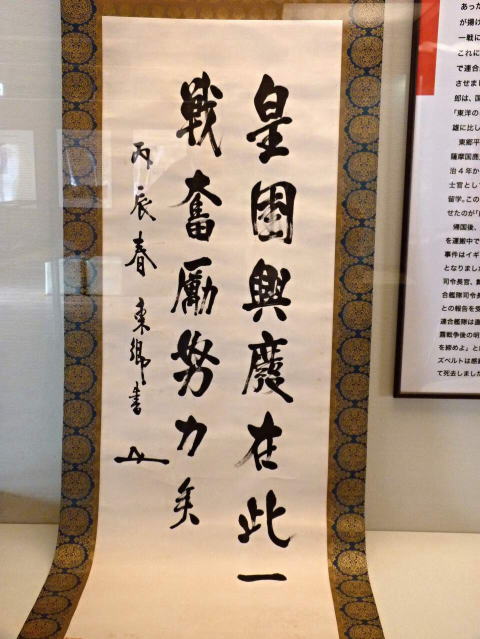 皇國興廢在此一
戰奮勵努力矣
丙辰春 東郷書
あった
が揚げ
一戦に
これに
で連合
させまし
郎は、国
「東洋の
雄に比し
東郷平
薩摩国鹿
治4年か
士官とし
留学。この
せたのが「
帰国後、
を運搬中で
事件はイギ
となりました
司令長官、
合艦隊司令長
との報告を受
連合艦隊は
露戦争後の明
を締めよ」と
ズベルトは感
て死去しました